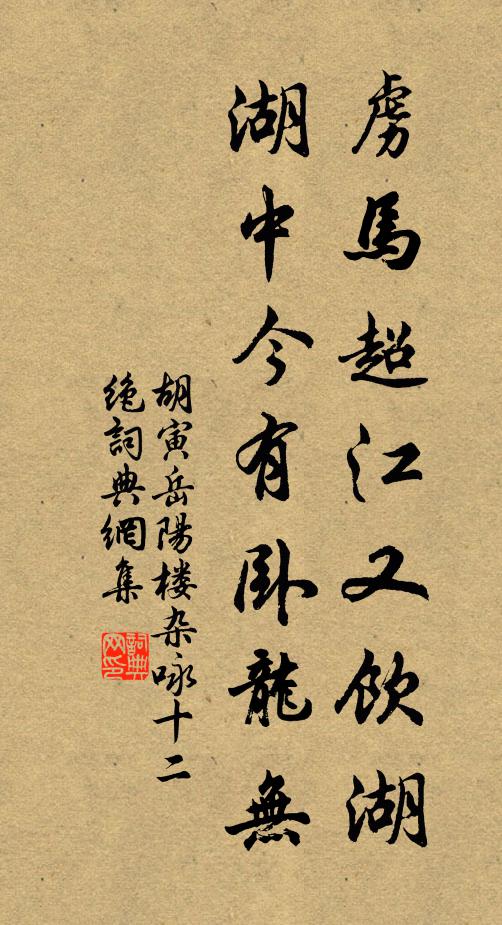 虜馬超江又飲湖
湖中今有卧龍無
胡寅岳陽楼杂咏十二
绝詞典網集
詞典网印